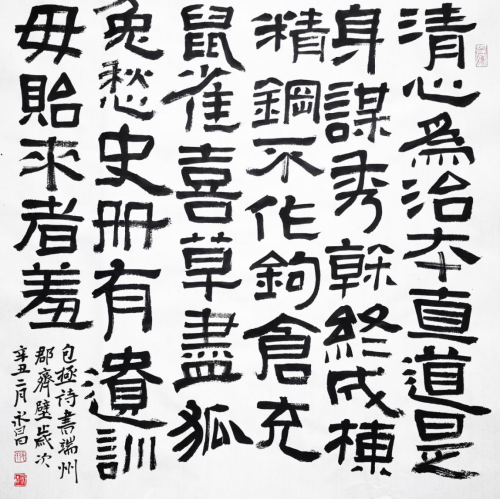 清心為治本直道是
身謀秀榦終成棟
精鋼不作鉤倉充
鼠雀喜草盡狐
兔愁史册有遺訓
毋貽來者羞
包拯詩書端州
郡齋壁歲次
辛丑二月永昌